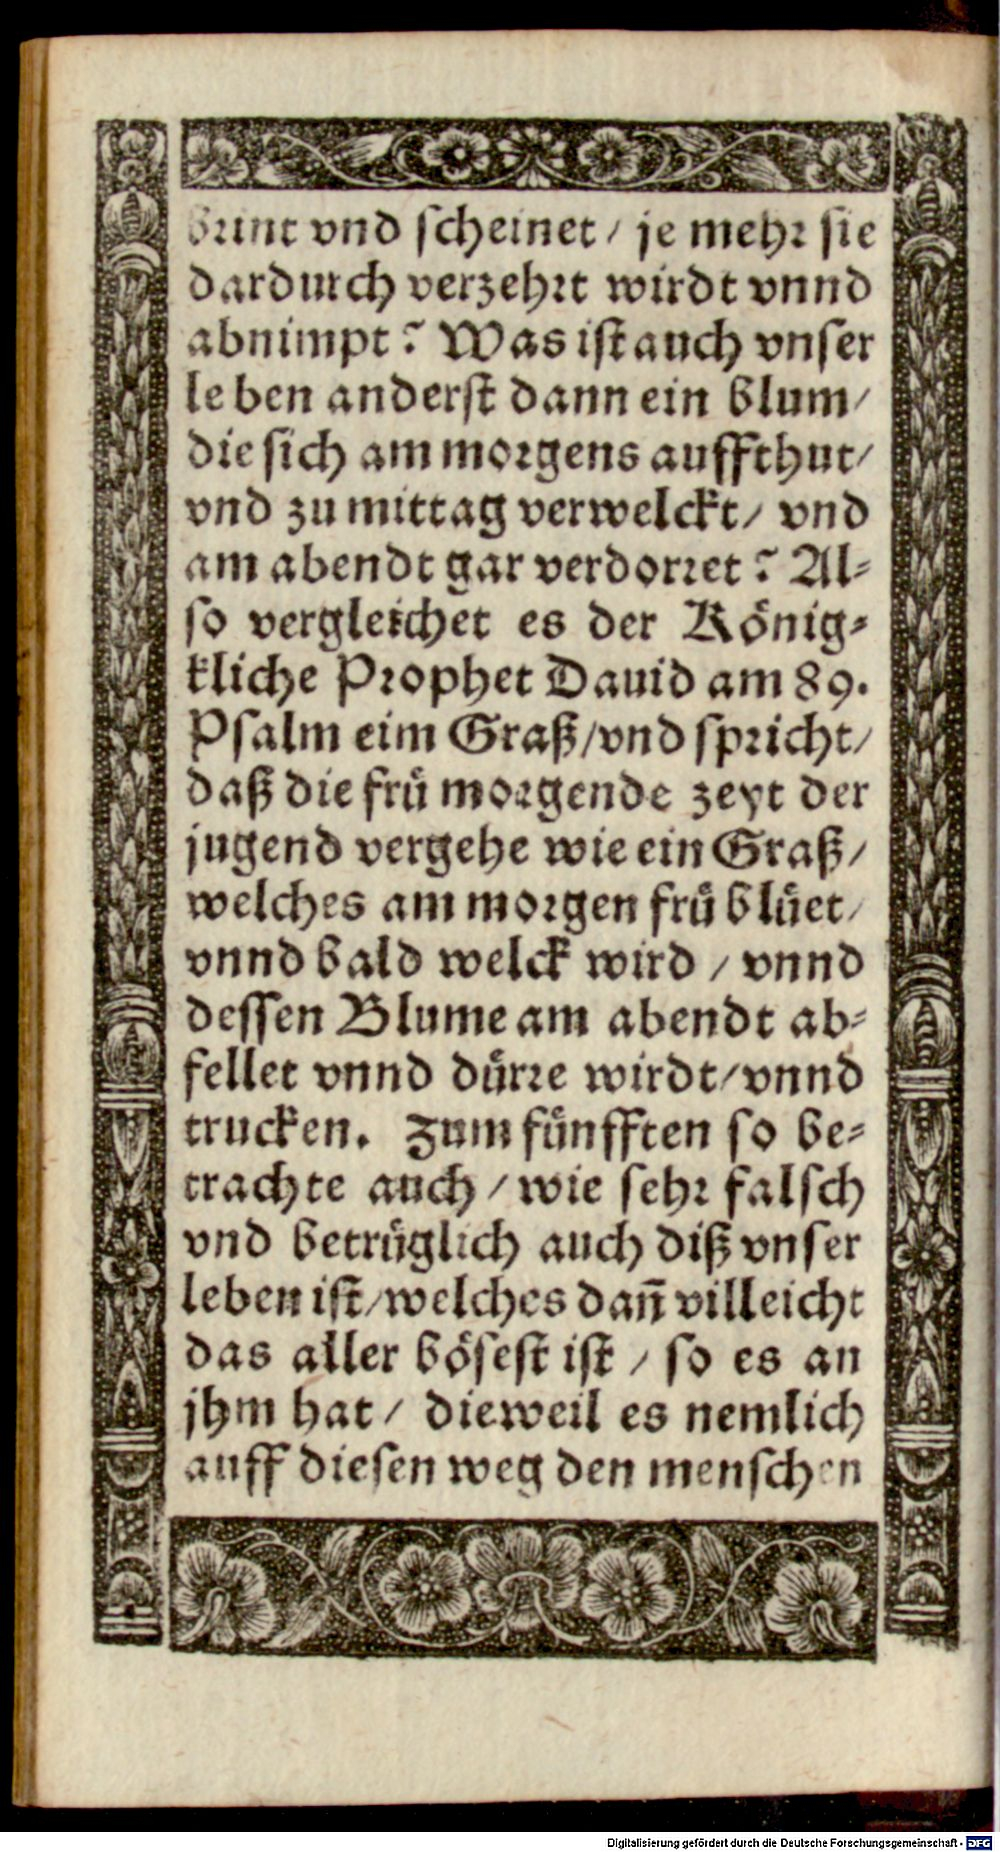 brint vnd scheinet / je mehr sie
dardurch verzehrt wirdt vnnd
abnimpt? Was ist auch vnser
leben anderst dann ein blum /
die sich am morgens auffthut /
vnd zu mittag verwelckt / vnd
am abendt gar verdorret? Al-
so vergleichet es der König-
kliche Prophet Dauid am 89.
Psalm eim Graß / vnd spricht /
daß die frü morgende zeyt der
jugend vergehe wie ein Graß /
welches am morgen frü blüet /
vnnd bald welck wird / vnnd
dessen Blume am abendt ab-
fellet vnnd dürre wirdt / vnnd
trucken. Zum fünfften so be-
trachte auch / wie sehr falsch
vnd betrüglich auch diß vnser
leben ist / welches dañ villeicht
das aller bösest ist / so es an
jhm hat / dieweil es nemlich
auff diesen weg den menschen
Digitalisierung gefördert durch die Deutsche Forschungsgemeinschaft - DFG